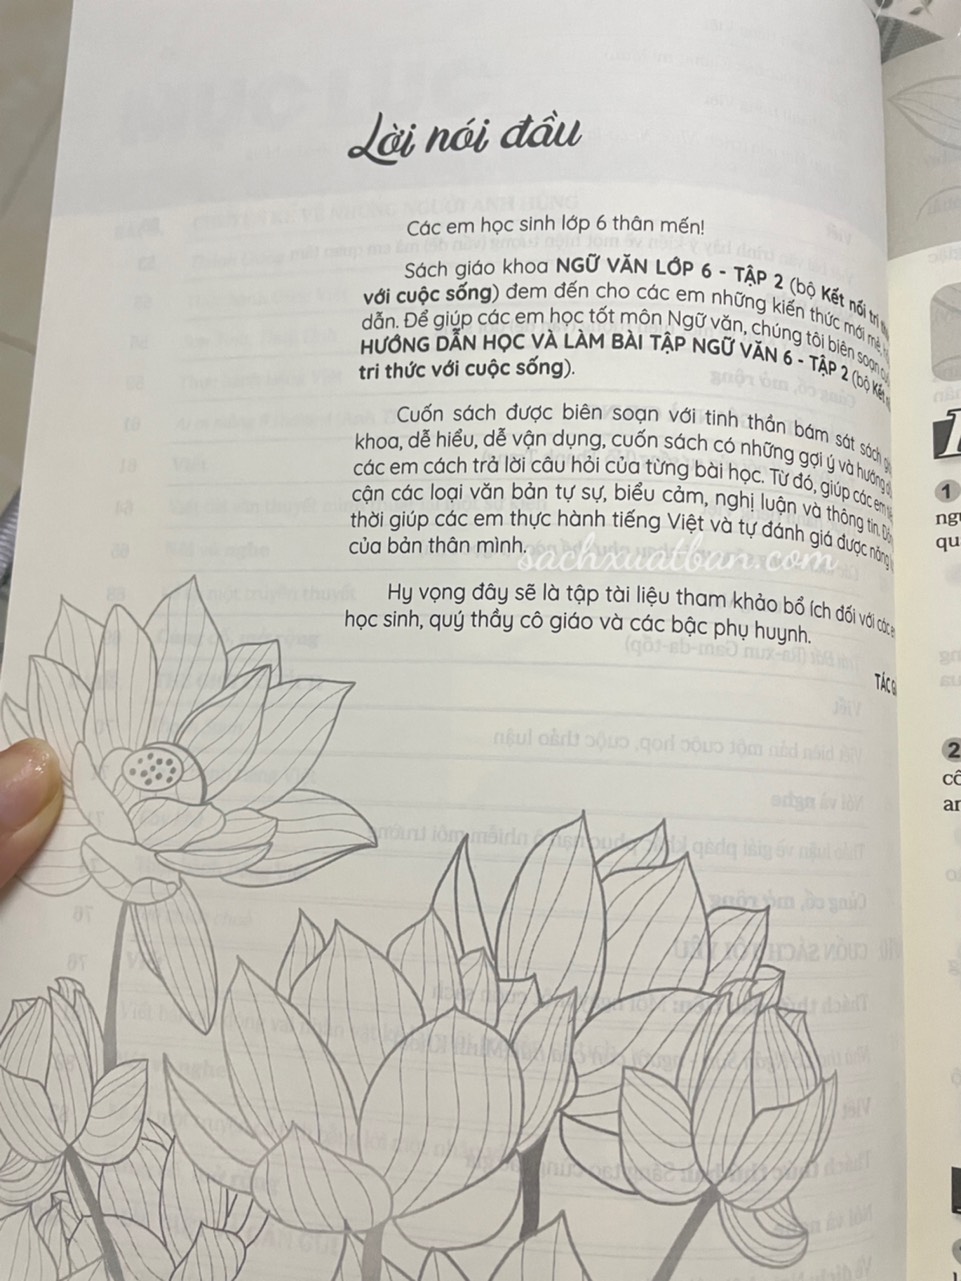 Lời nói đầu
Các em học sinh lớp 6 thân mến!
Sách giáo khoa NGỮ VĂN LỚP 6 - TẬP 2 (bộ Kết nối tri
với cuộc sống) đem đến cho các em những kiến thức mới mẻ,
dẫn. Để giúp các em học tốt môn Ngữ văn, chúng tôi biên soạn
HƯỚNG DẪN HỌC VÀ LÀM BÀI TẬP NGỮ VĂN 6 - TẬP 2 (bộ Kết
tri thức với cuộc sống).
Cuốn sách được biên soạn với tinh thần bám sát sách
khoa, dễ hiểu, dễ vận dụng, cuốn sách có những gợi ý và hướng
các em cách trả lời câu hỏi của từng bài học. Từ đó, giúp các em
cận các loại văn bản tự sự, biểu cảm, nghị luận và thông tin.
thời giúp các em thực hành tiếng Việt và tự đánh giá được năng
của bản thân mình.
sachxuatban.com
Hy vọng đây sẽ là tập tài liệu tham khảo bổ ích đối với các
học sinh, quý thầy cô giáo và các bậc phụ huynh.
TÁC
1
2